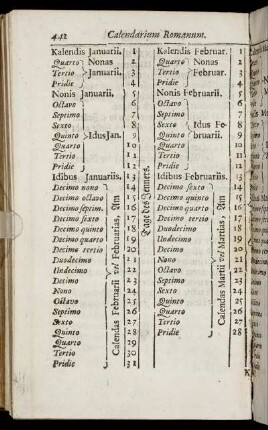 442 Calendarium Romanum.
Kalendis Januarii. 1
Quarto 2
Tertio 3
Pridie 4
Nonas Januarii.
Nonis Januarii. 5
Octavo 6
Septimo 7
Sexto 8
Quinto 9
Quarto 10
Tertio 11
Pridie 12
Idus Jan.
Idibus Januariis. 13
Decimo nono 14
Decimo octavo 15
Decimo septim. 16
Decimo sexto 17
Decimo quinto 18
Decimo quarto 19
Decimo tertio 20
Duodecimo 21
Undecimo 22
Decimo 23
Nono 24
Octavo 25
Septimo 26
Sexto 27
Quinto 28
Quarto 29
Tertio 30
Pridie 31
Calendas Februarii vel Februarias,
Tage des Jenners.
Kalendis Februar. 1
Quarto 2
Tertio 3
Pridie 4
Nonas Februar.
Nonis Februarii. 5
Octavo 6
Septimo 7
Sexto 8
Quinto 9
Quarto 10
Tertio 11
Pridie 12
Idus Fe-
bruarii.
Idibus Februariis. 13
Decimo sexto 14
Decimo quinto 15
Decimo quarto 16
Decimo tertio 17
Duodecimo 18
Undecimo 19
Decimo 20
Nono 21
Octavo 22
Septimo 23
Sexto 24
Quinto 25
Quarto 26
Tertio 27
Pridie 28
Calendas Martii vel Martias,